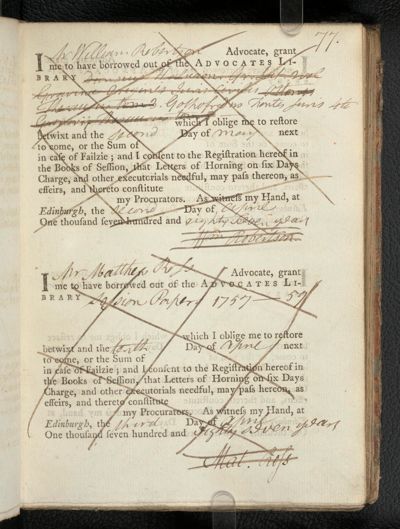 77.
I Mr William Robertson Advocate, grant
me to have borrowed out of the ADVOCATES LI-
BRARY
Gothofredus Fontes Juris 4to
which I oblige me to restore
betwixt and the second Day of May next
to come, or the Sum of
in case of Failzie; and I consent to the Registration hereof in
the Books of Session, that Letters of Horning on six Days
Charge, and other executorials needful, may pass thereon, as
effeirs, and thereto constitute
my Procurators. As witness my Hand, at
Edinburgh, the second Day of Aprile
One thousand seven hundred and eighty seven years
Wm Robertson
I Mr Matthew Ross Advocate, grant
me to have borrowed out of the ADVOCATES LI-
BRARY Session Papers 1757 — 59
which I oblige me to restore
betwixt and the Day of Aprile next
to come, or the Sum of
in case of Failzie; and I consent to the Registration hereof in
the Books of Session, that Letters of Horning on six Days
Charge, and other executorials needful, may pass hereon, as
effeirs, and thereto constitute
my Procurators. As witness my Hand, at
Edinburgh, the third Day of Aprile
One thousand seven hundred and Eighty seven years
Mat. Ross